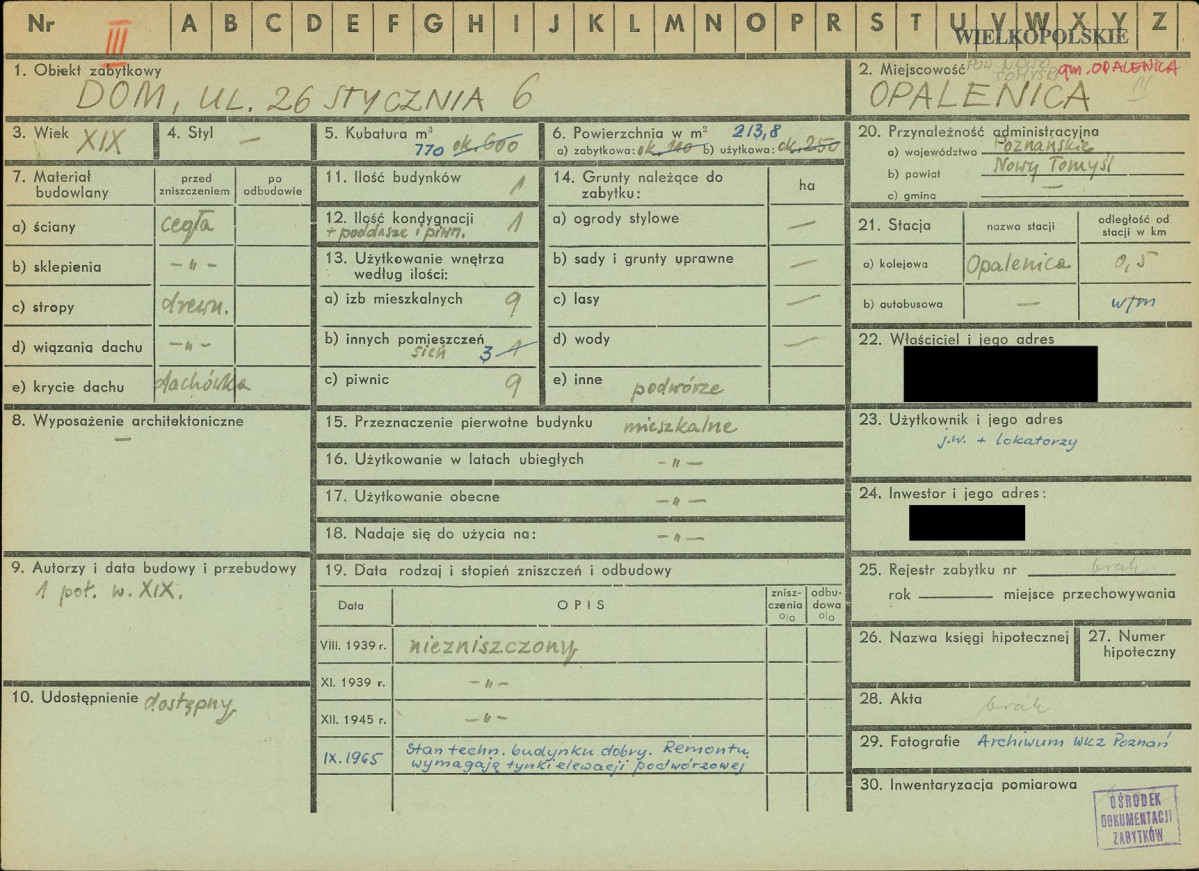 Nr III A B C D E F G H I J K L M N O P R S T U V W X Y Z
WIELKOPOLSKIE
1. Obiekt zabytkowy
DOM, UL. 26 STYCZNIA 6
2. Miejscowość POW. NOWO TOMYSKI gm. OPALENICA
OPALENICA III
3. Wiek XIX
4. Styl —
5. Kubatura m³
770 ok. 600
6. Powierzchnia w m² 213,8
a) zabytkowa: ok. b) użytkowa: ok. 250
20. Przynależność administracyjna
a) województwo Poznańskie
b) powiat Nowy Tomyśl
c) gmina —
7. Materiał budowlany
przed zniszczeniem
po odbudowie
a) ściany cegła
b) sklepienia — " —
c) stropy drewn.
d) wiązania dachu — " —
e) krycie dachu dachówka
11. Ilość budynków 1
12. Ilość kondygnacji 1
+ poddasze i piwn.
13. Użytkowanie wnętrza
według ilości:
a) izb mieszkalnych 9
b) innych pomieszczeń
sień 3 1
c) piwnic 9
14. Grunty należące do
zabytku:
ha
a) ogrody stylowe —
b) sady i grunty uprawne —
c) lasy —
d) wody —
e) inne podwórze
21. Stacja
nazwa stacji
odległość od
stacji w km
a) kolejowa Opalenica 0,5
b) autobusowa — w/m
22. Właściciel i jego adres
23. Użytkownik i jego adres
j.w. + lokatorzy
24. Inwestor i jego adres:
8. Wyposażenie architektoniczne
—
15. Przeznaczenie pierwotne budynku mieszkalne
16. Użytkowanie w latach ubiegłych — " —
17. Użytkowanie obecne — " —
18. Nadaje się do użycia na: — " —
9. Autorzy i data budowy i przebudowy
1 poł. w. XIX.
10. Udostępnienie dostępny
19. Data rodzaj i stopień zniszczeń i odbudowy
Data
OPIS
znisz-
czenia
o/o
odbu-
dowa
o/o
VIII. 1939 r. niezniszczony
XI. 1939 r. — " —
XII. 1945 r. — " —
IX. 1965 Stan techn. budynku dobry. Remontu
wymagają tynki elewacji podwórzowej
25. Rejestr zabytku nr brak
rok miejsce przechowywania
26. Nazwa księgi hipotecznej
27. Numer
hipoteczny
28. Akta brak
29. Fotografie Archiwum WKZ Poznań
30. Inwentaryzacja pomiarowa
OŚRODEK
DOKUMENTACJI
ZABYTKÓW